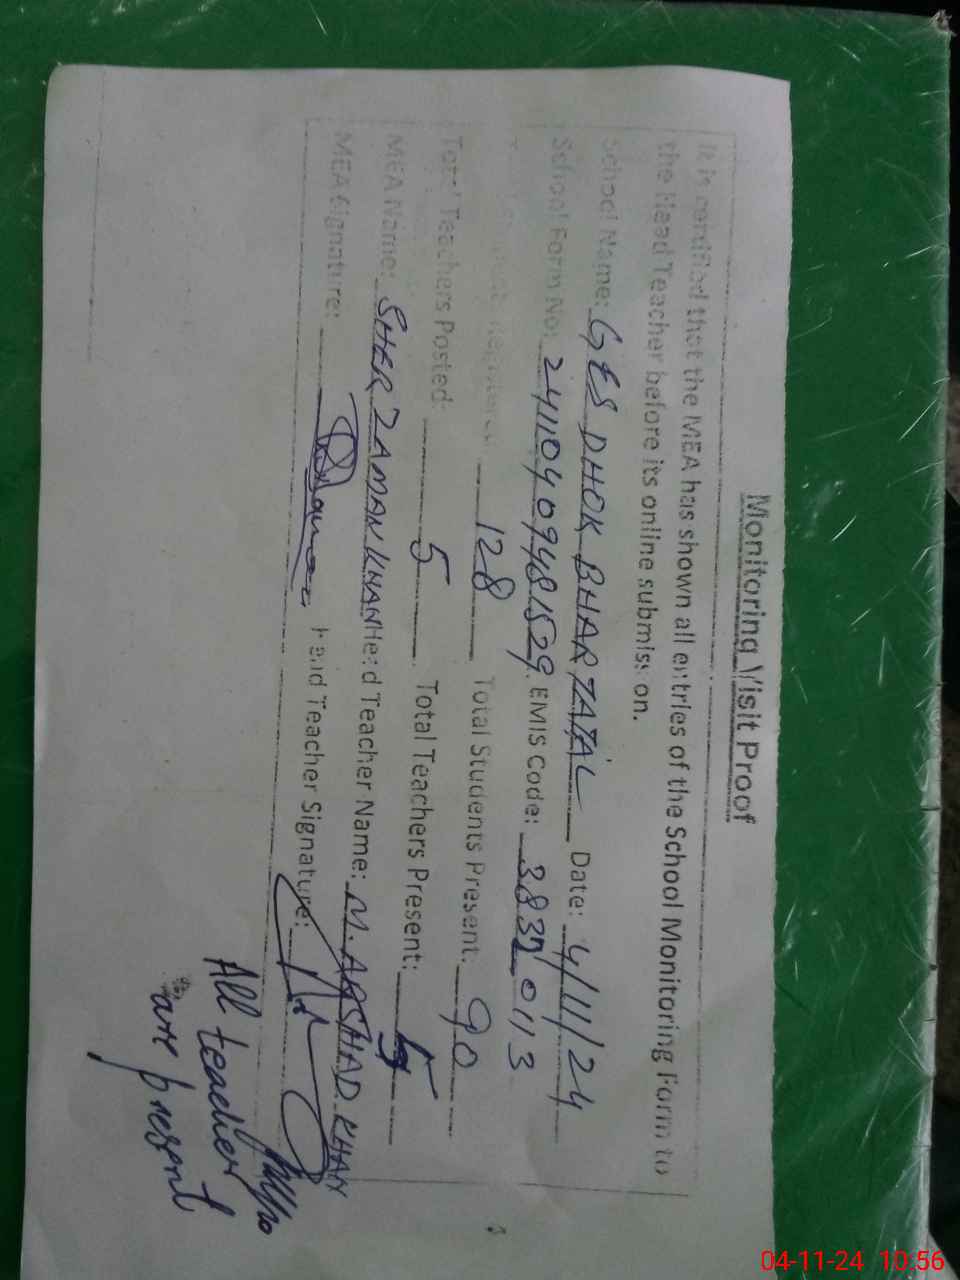 Monitoring Visit Proof
It is certified that the MEA has shown all entries of the School Monitoring Form to
the Head Teacher before its online submission.
School Name: GES DHOK BHARTATAL Date: 4/11/24
School Form No: 24110409481529 EMIS Code: 3837 0113
128 Total Students Present: 90
Total Teachers Posted: 5 Total Teachers Present: 5
MEA Name: SHER ZAMAN KHAN Head Teacher Name: M. ARSHAD KHAN
MEA Signature: Head Teacher Signature:
All teacher
are present
04-11-24 10:56